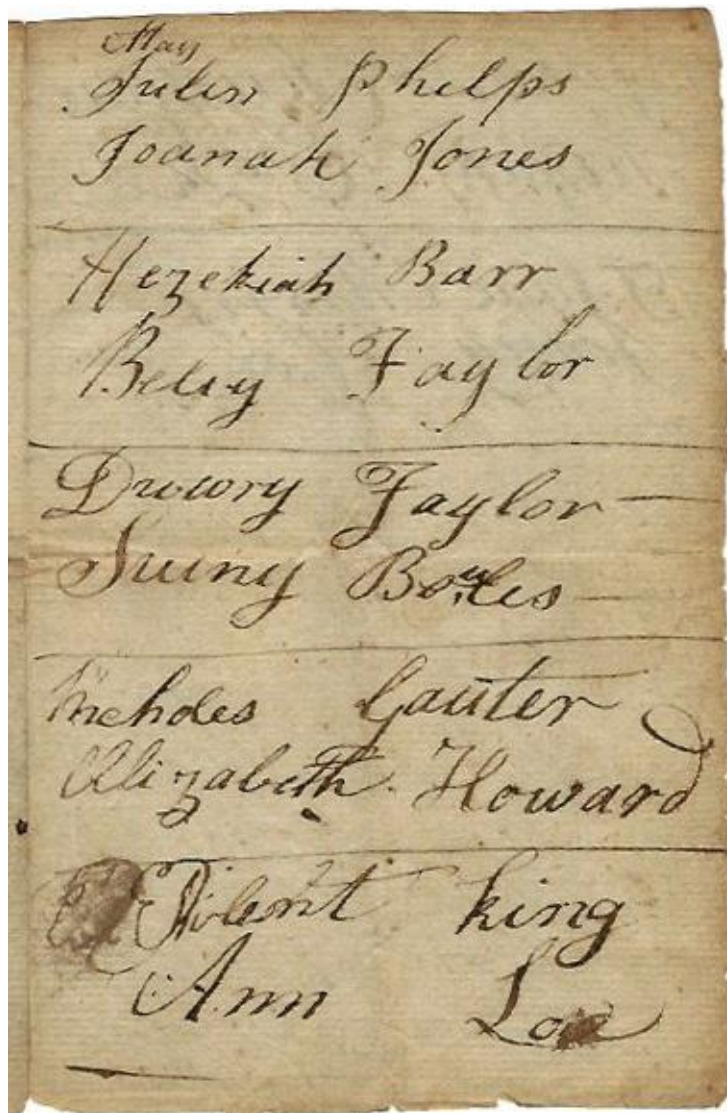 May
Julin Phelps
Joanah Jones
Hezekiah Barr
Betsy Taylor
Drewry Taylor
Suiny Bowles
Nicholes Gauter
Elizabeth Howard
king
Ann